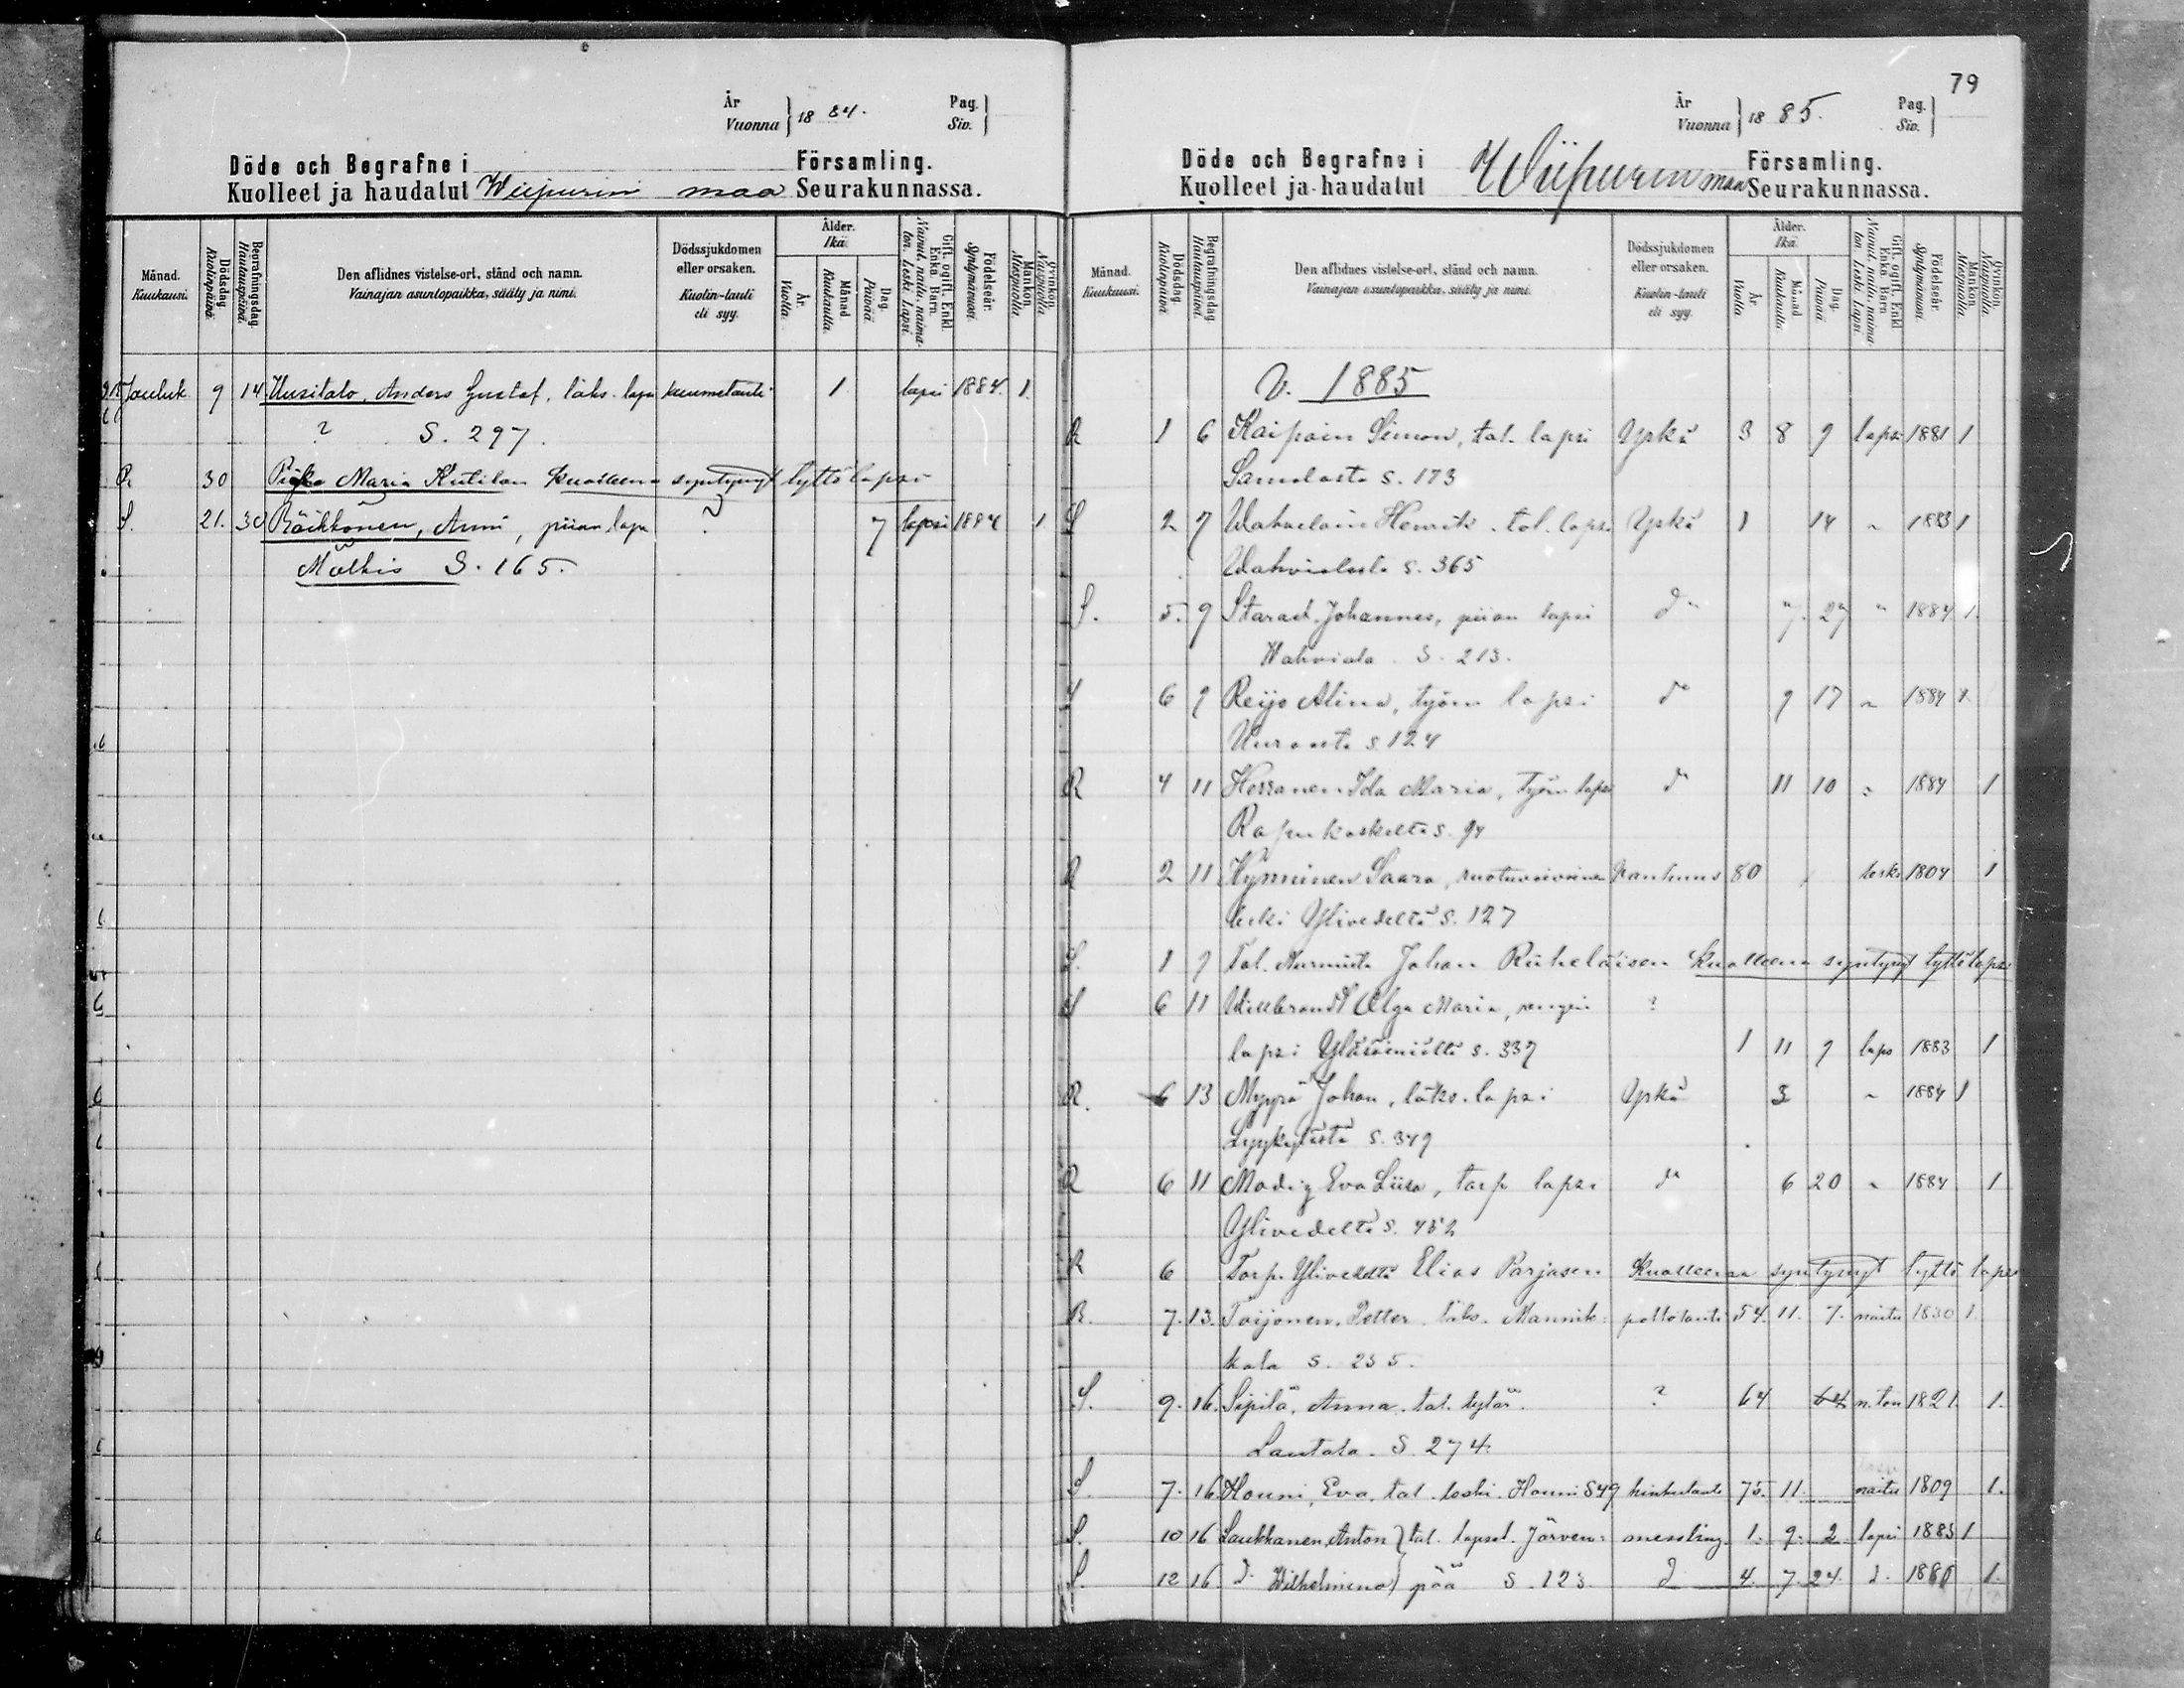 År
Vuonna } 18 84.
Pag.
Siv.
Döde och Begrafne i Församling.
Kuolleet ja haudatut Wiipurin maa Seurakunnassa.
Månad. Kuukausi. Dödsdag. Kuolinpäivä. Begrafningsdag. Hautauspäivä. Den aflidnes vistelse-ort, stånd och namn. Vainajan asuntopaikka, sääty ja nimi. Dödssjukdomen eller orsaken. Kuolin-tauti eli syy. Ålder. Ikä. År. Vuotta. Månad. Kuukautta. Dag. Päivää. Gift, ogift, Enkl. Enka, Barn. Nainut, naitu, naimaton, Leski, Lapsi. Födelseår. Syntymävuosi. Mankön. Miespuolia. Qvinkön. Naispuolia.
Jouluk. 9 14 Uusitalo, Anders Gustaf, läks. laps kuumetauti 1 lapsi 1884. 1.
? S. 297.
R 30 Maria Kutilan kuolleena syntynyt tyttö lapsi
S. 21. 30 Räikkönen, Anni, piian laps ? 7 lapsi 1884 1
Mälkiö S. 165.
79
År
Vuonna } 18 85.
Pag.
Siv.
Döde och Begrafne i Församling.
Kuolleet ja haudatut Wiipurin maa Seurakunnassa.
Månad. Kuukausi. Dödsdag. Kuolinpäivä. Begrafningsdag. Hautauspäivä. Den aflidnes vistelse-ort, stånd och namn. Vainajan asuntopaikka, sääty ja nimi. Dödssjukdomen eller orsaken. Kuolin-tauti eli syy. Ålder. Ikä. År. Vuotta. Månad. Kuukautta. Dag. Päivää. Gift, ogift, Enkl. Enka, Barn. Nainut, naitu, naimaton, Leski, Lapsi. Födelseår. Syntymävuosi. Mankön. Miespuolia. Qvinkön. Naispuolia.
V. 1885
R 1 6 Kaipain Simon, tal. lapsi Yskä 3 8 9 lapsi 1881 1
Samolasta s. 173
S 2 7 Wahvelain Henrik. tal. lapsi Yskä 1 14 " 1883 1
Wahvialasta s. 365
S. 5. 9 Starast. Johannes, piian lapsi do 7. 27 " 1884 1.
Wahviala. S. 213.
6 9 Reijo Alina, työm lapsi do 9 17 " 1884 1.
Uuraasta s. 124
R 4 11 Herranen Ida Maria, työm laps do 11 10 " 1884 1
Rapukoskelta s. 94
R 2 11 Hynninen Saara, ruotuvaivainen vanhuus 80 leski 1804 1
leski Ylivedeltä s. 127
S. 1 9 Tal. Johan Riiheläisen kuolleena syntynyt tyttölapsi
S 6 11 Willbrandt Olga Maria, rengin ?
lapsi Yläsäiniöltä s. 337 1 11 9 laps 1883 1
R. 6 13 Myyrä Johan, läks. lapsi Yskä 3 " 1884 1
Lyykylästä s. 349
R 6 11 Modig Eva Liisa, torp lapsi do 6 20 " 1884 1
Ylivedeltä s. 452
R 6 Torp. Ylivedeltä Elias Parjasen kuolleena syntynyt tyttö lapsi
R. 7. 13. Toijonen, Petter. läks. Mannik= polttotauti 54. 11. 7. naitu 1830 1.
kala s. 235.
S. 9. 16. Sipilä, Anna. tal. tytär. ? 64 n.ton 1821. 1.
Lautala. S. 274.
S. 7. 16. Houni, Eva. tal. leski. Houni S 49 75. 11. naitu 1809 1.
S. 10 16 Laukkanen, Anton } tal. lapset. Järven= messling 1. 9. 2 lapsi 1883 1
S. 12 16. d. Wilhelmina } pää S. 123. d 4. 7. 24. d. 1880 1.